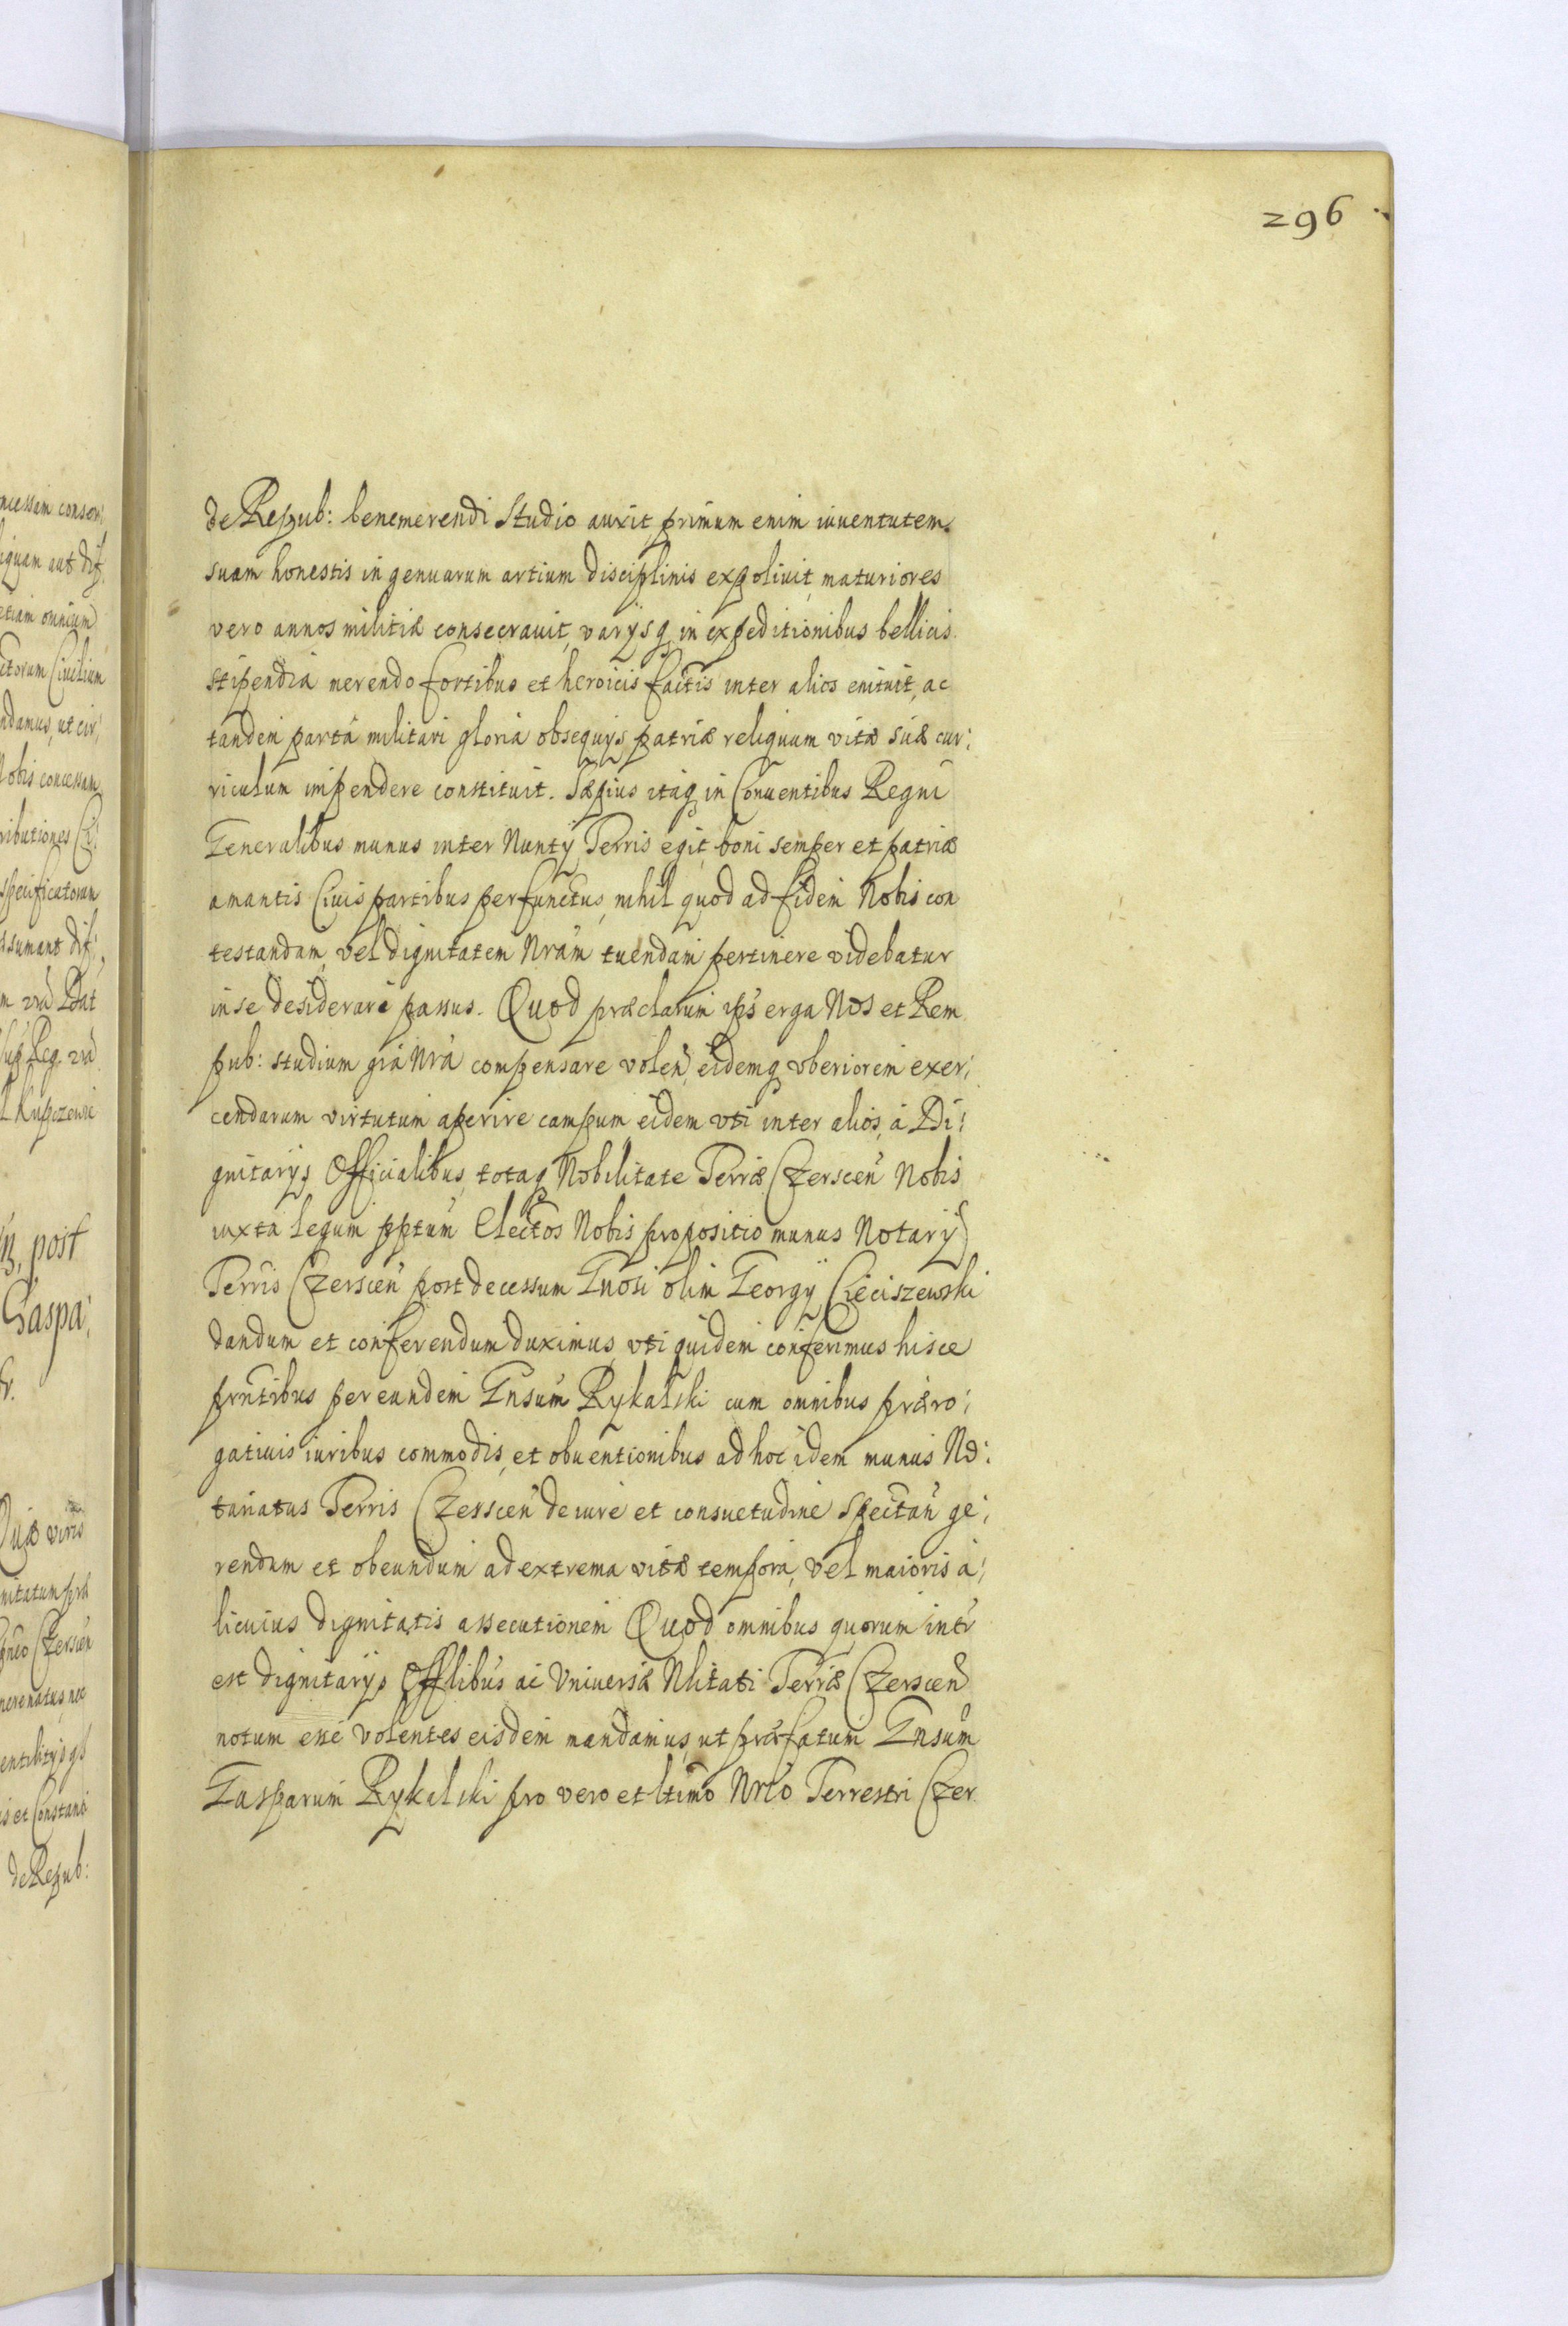 296
de Repub: benemerendi Studio auxit, primum enim iuuentutem
suam honestis ingenuarum artium disciplinis expoliuit, maturiores
vero annos militiæ consecrauit, varijsq in expeditionibus bellicis
stipendia merendo fortibus et heroicis factis inter alios enituit, ac
tandem partâ militari gloriâ obsequijs patriæ reliquum vitæ suæ cur:
riculum impendere constituit. Sæpius itaq in Conuentibus Regni
Generalibus munus inter Nuntij Terris egit, boni semper et patriæ
amantis Ciuis partibus perfunctus, nihil quod ad fidem Nobis con
testandam, vel dignitatem Nram tuendam pertinere videbatur
in se desiderari passus. Quod præclarum ips erga Nos et Rem
pub: studium grã Nrã compensare volen, eidemq vberiorem exer:
cendarum virtutum aperire campum eidem vti inter alios, à Di:
gnitarijs Officialibus, totaq Nobilitate Terræ Czerscen Nobis
iuxta legum pptum Electos Nobis propositio munus Notarij
Terris Czerscen post decessum Gnosi olim Georgij Cieciszewski
dandum et conferendum duximus, vti quidem conferimus hisce
prntibus per eundem Gnsum Rykalski cum omnibus præro:
gatiuis iuribus commodis, et obuentionibus ad hoc idem munus No:
tariatus Terris Czerscen de iure et consuetudine Spectan ge:
rendum et obeundum ad extrema vitæ tempora, vel maioris a:
licuius dignitatis assecutionem Quod omnibus quorum intr
est dignitarijs Offlibus ac Vniuersæ Nlitati Terræ Czerscen
notum esse volentes eisdem mandamus, ut præfatum Gnsum
Gasparum Rykalski pro vero et ltimo Nrio Terrestri Czer
ncessam
aut dif
etiam omnium
Ciuilium
ndamus, ut cir:
Nobis concessam
ributiones
ssumant dif:
post
Gaspa:
Quæ viris
et
de Repub: